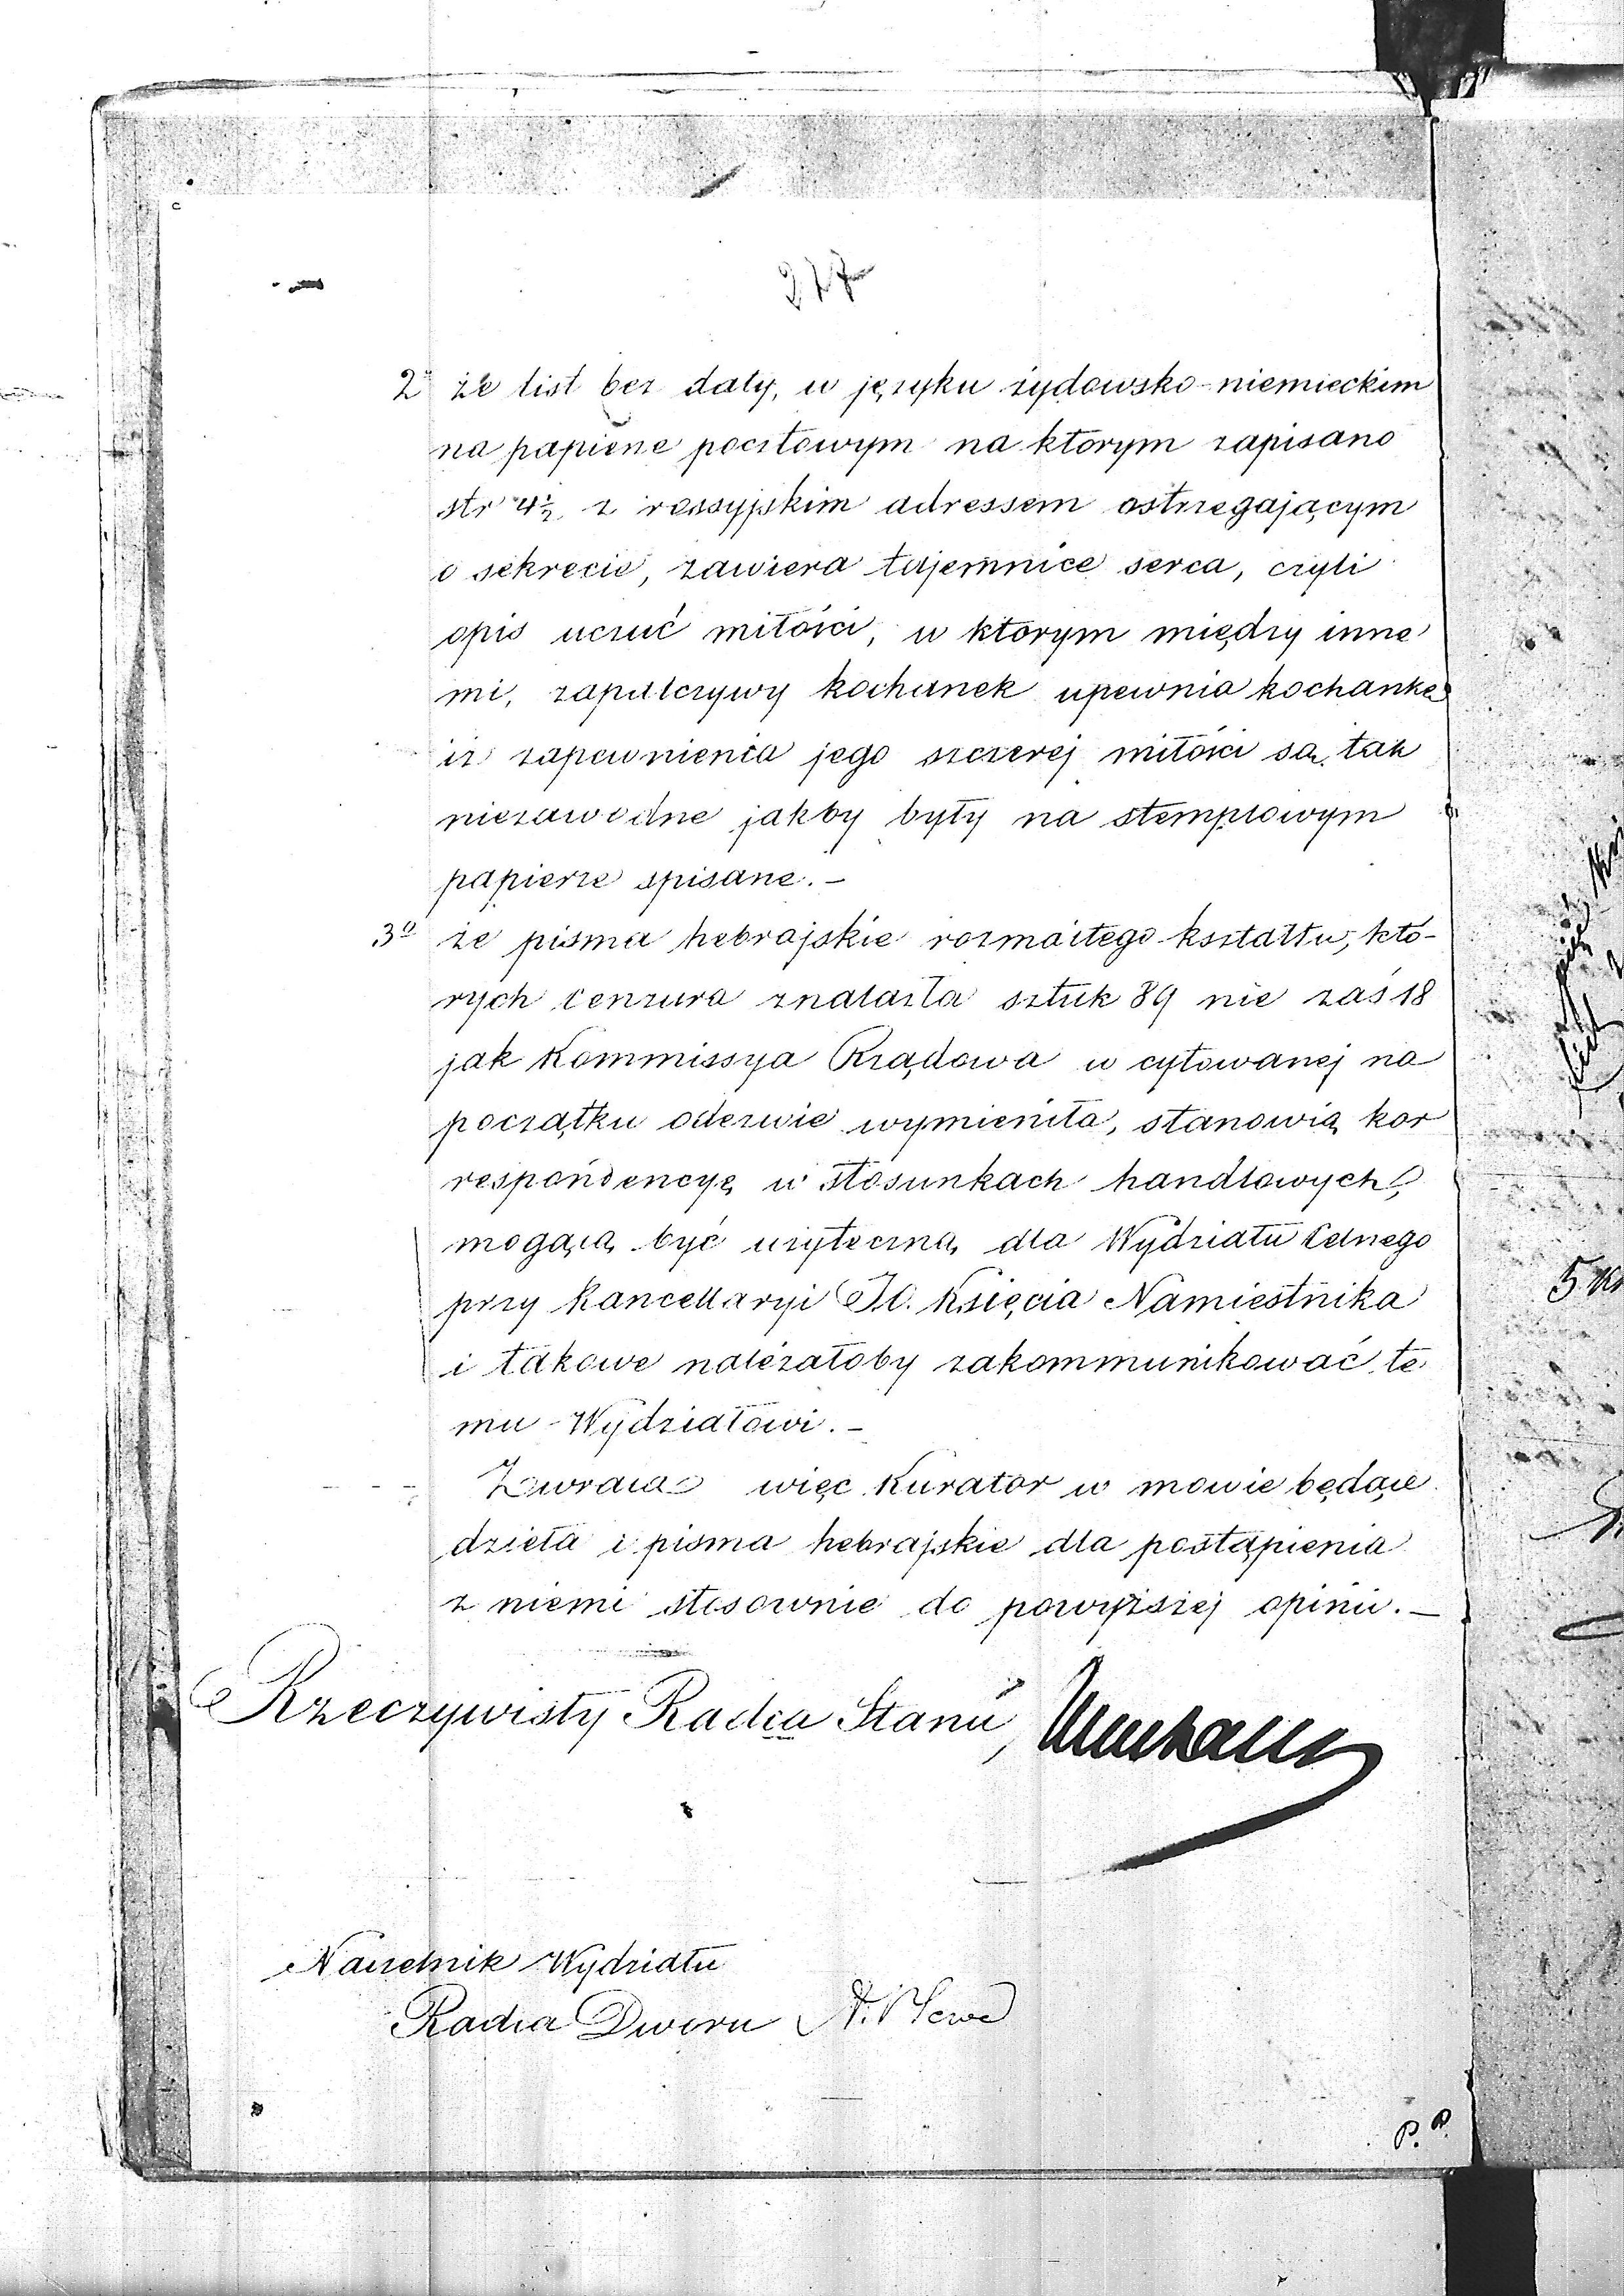 277
2º że list bez daty, w języku żydowsko-niemieckim
na papierze pocztowym na którym zapisano
str 4½ z rossyjskim adressem ostrzegającym
o sekrecie, zawiera tajemnice serca, czyli
opis uczuć miłości, w którym między inne
mi, zapalczywy kochanek upewnia kochankę
iż zapewnienia jego szczerej miłości są tak
niezawodne jakby były na stemplowym
papierze spisane.-
3º że pisma hebrajskie rozmaitego kształtu, któ-
rych cenzura znalazła sztuk 89 nie zaś 18
jak Kommissya Rządowa w cytowanej na
początku odezwie wymieniła, stanowią kor
respondencyę w stosunkach handlowych,
mogącą być użyteczną dla Wydziału Celnego
przy Kancellaryi JO. Księcia Namiestnika
i takowe należałoby zakommunikować te
mu Wydziałowi.-
Zwraca więc Kurator w mowie będące
dzieła i pisma hebrajskie dla postąpienia
z niemi stosownie do powyższej opinii.-
Rzeczywisty Radca Stanu,
Naczelnik Wydziału
Radca Dworu
P. P.